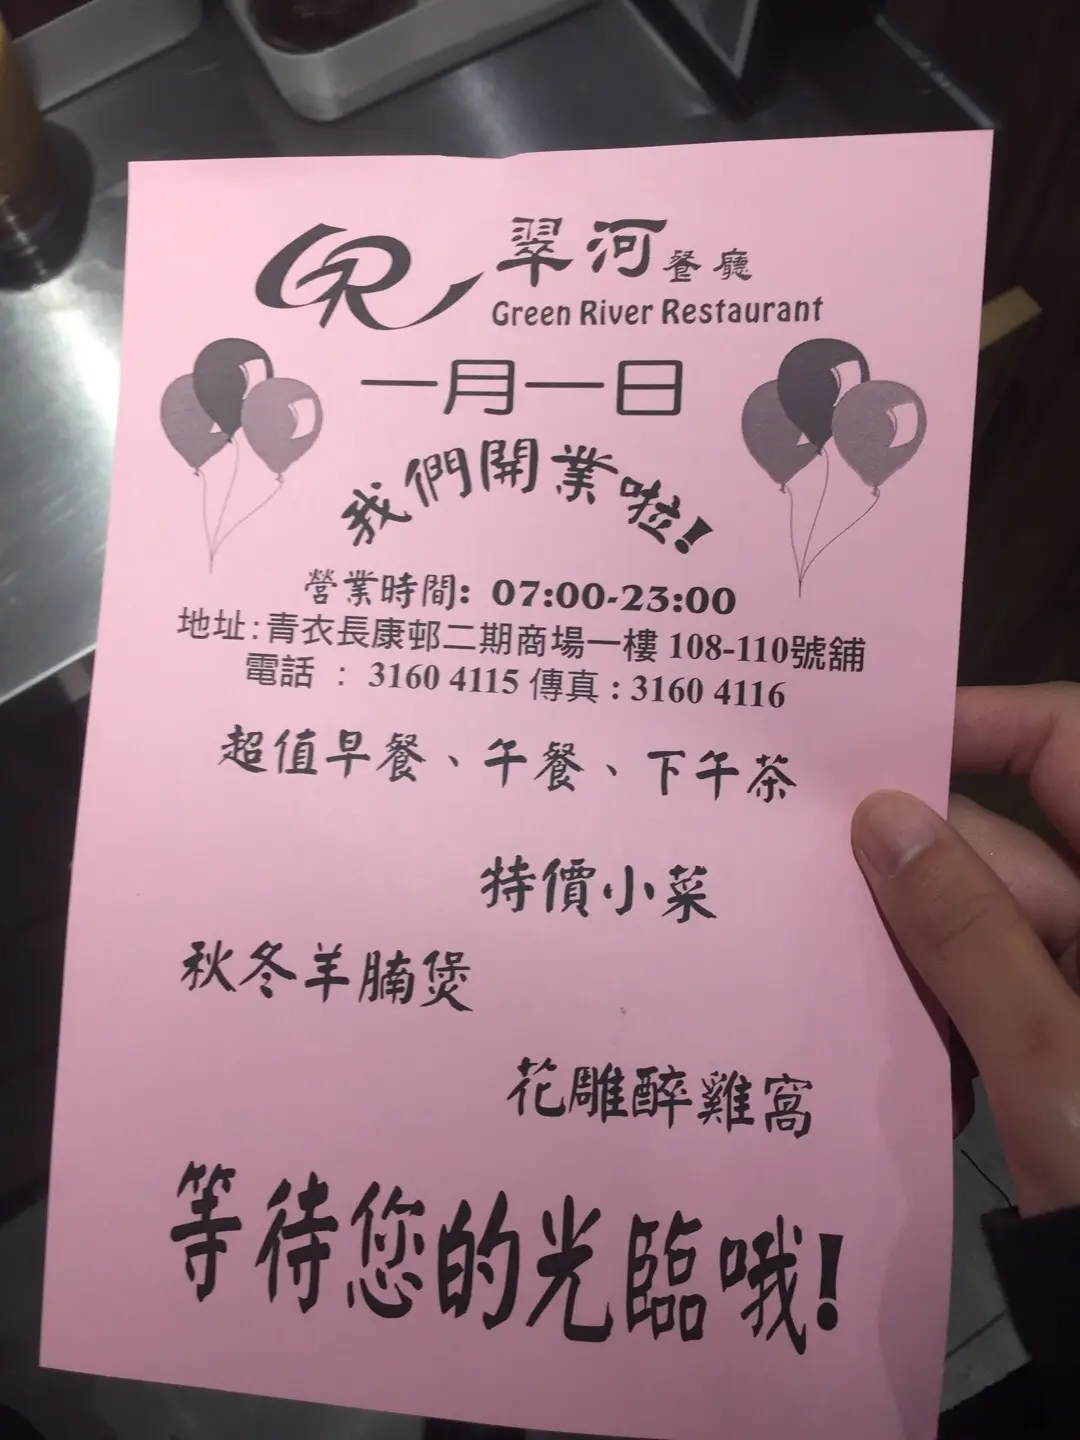 GR 翠河餐廳
Green River Restaurant
一月一日
我們開業啦!
營業時間: 07:00-23:00
地址:青衣長康邨二期商場一樓 108-110號舖
電話 : 3160 4115 傳真 : 3160 4116
超值早餐、午餐、下午茶
特價小菜
秋冬羊腩煲
花雕醉雞窩
等待您的光臨哦!